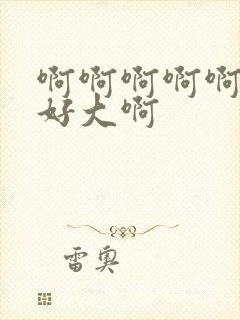 啊啊啊啊啊
好大啊
雷奥